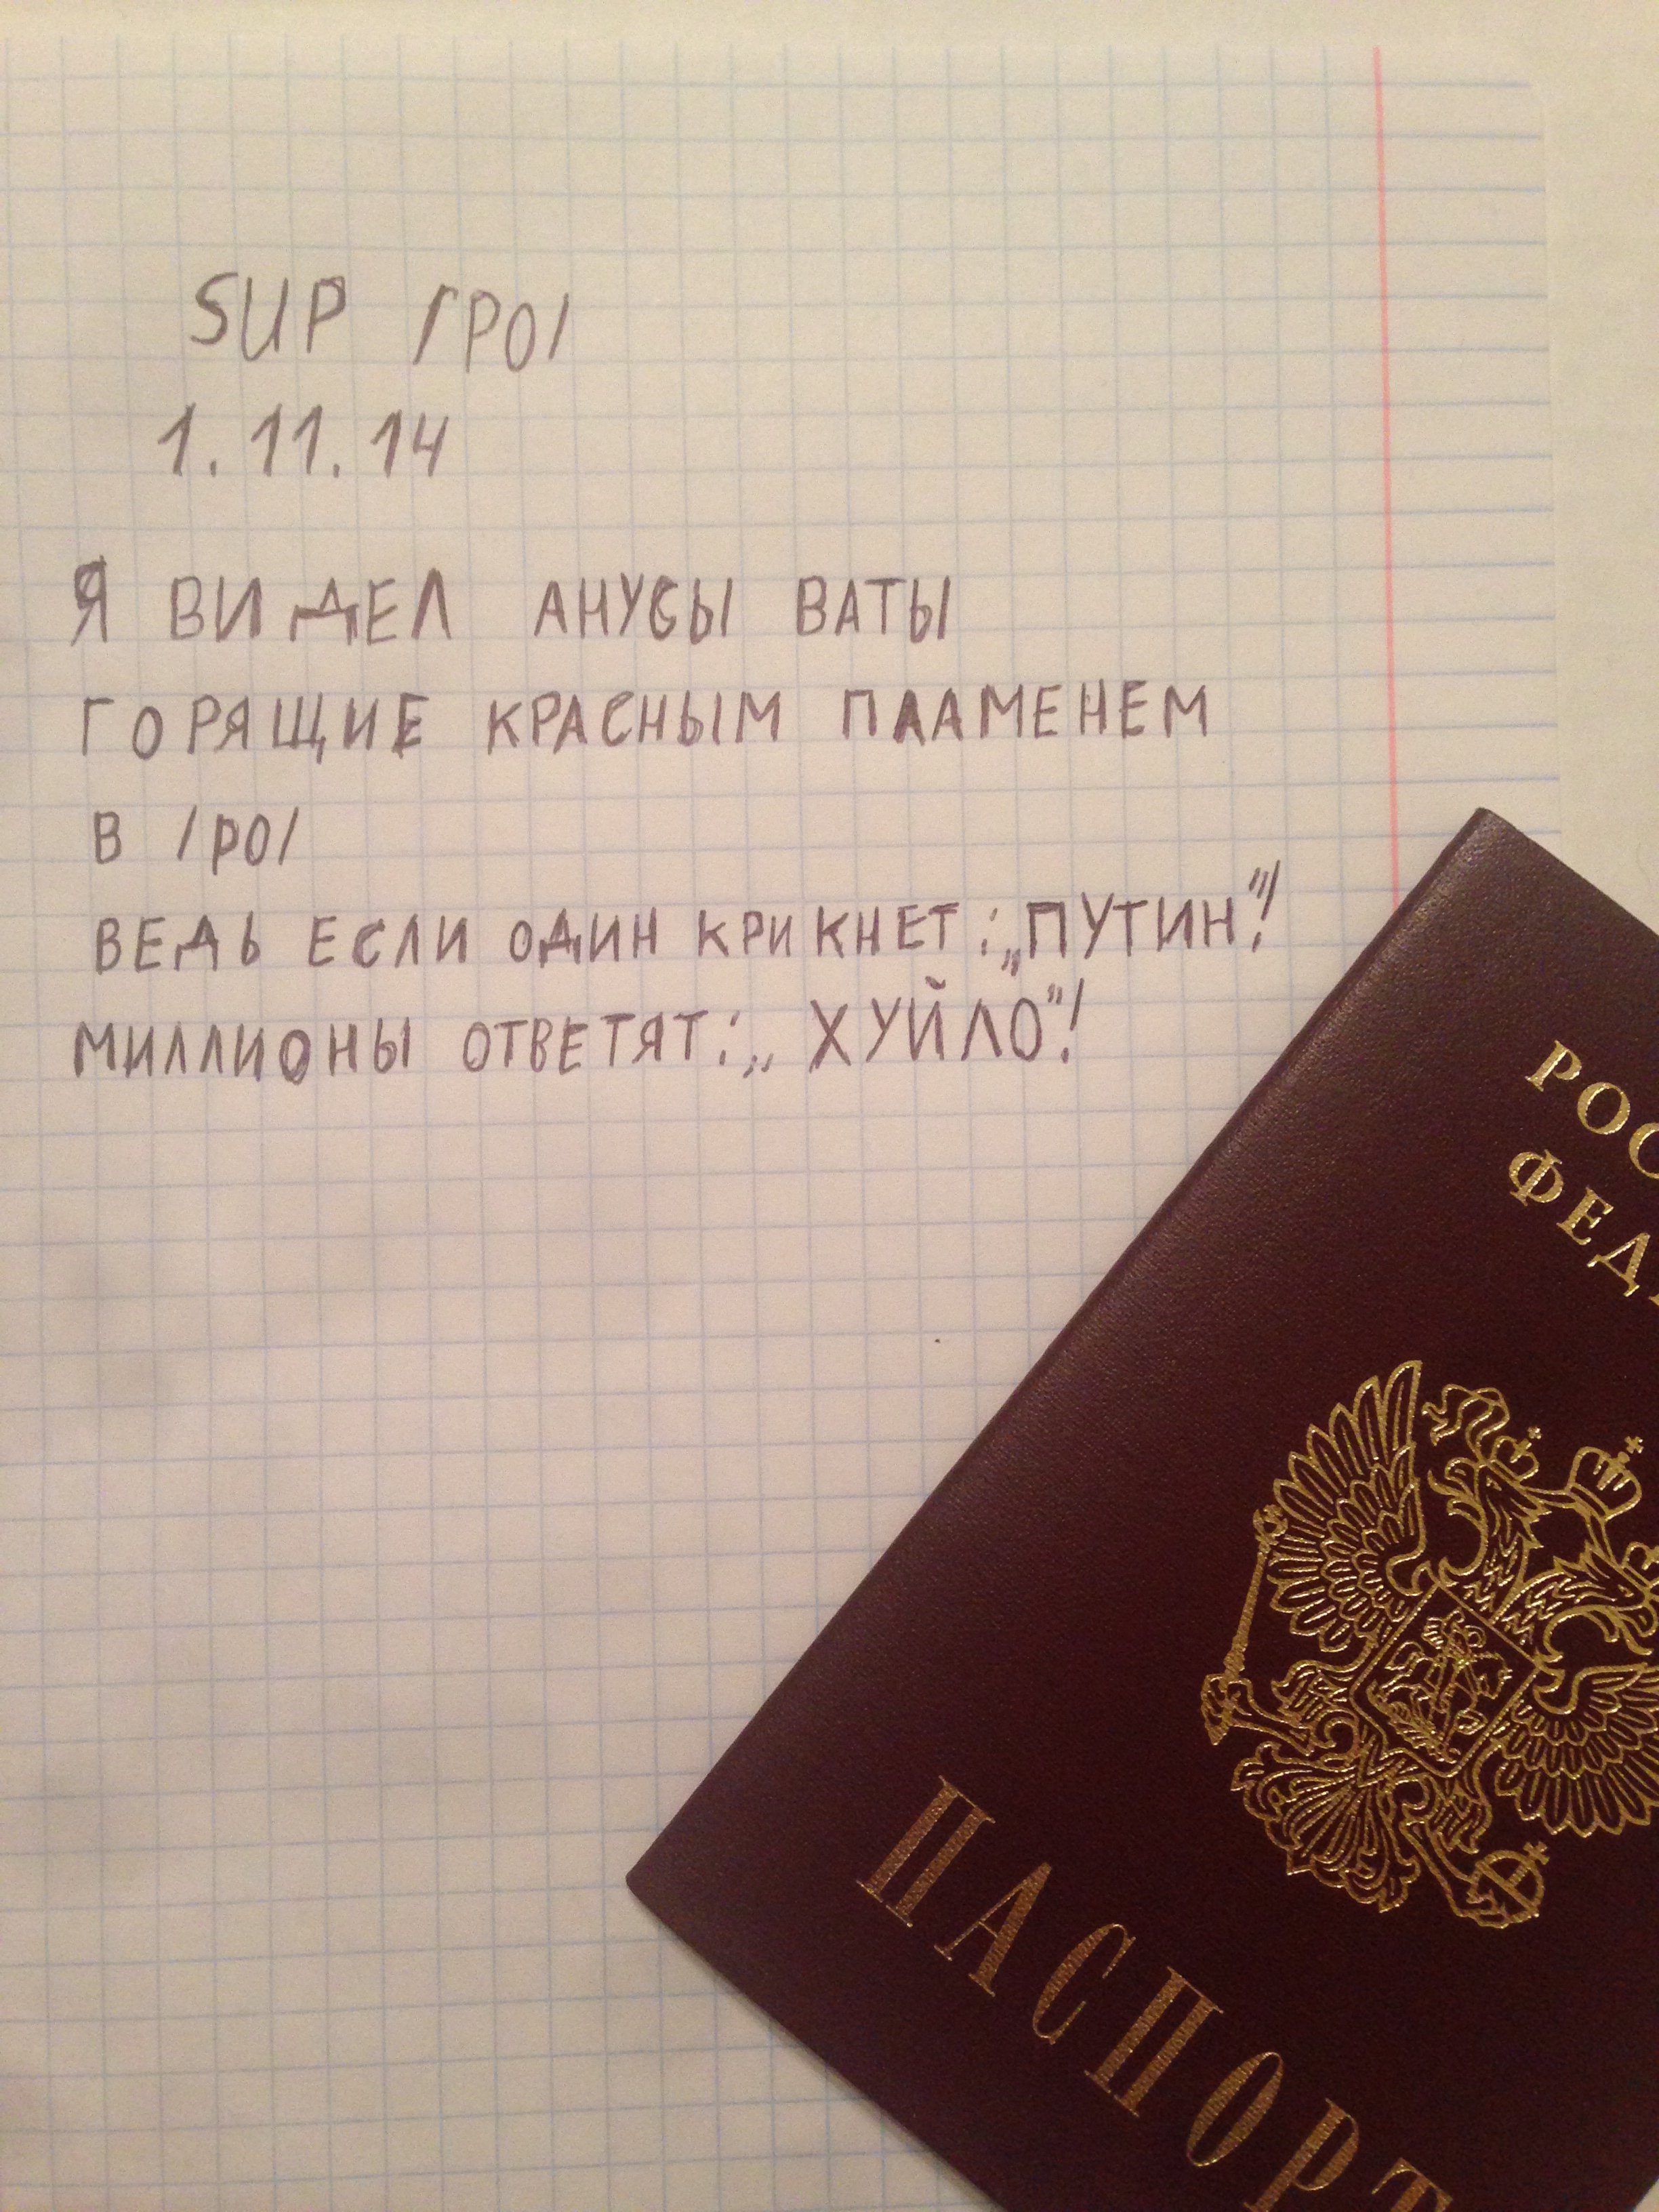 SUP /PO/
1.11.14
Я ВИДЕЛ АНУСЫ ВАТЫ
ГОРЯЩИЕ КРАСНЫМ ПЛАМЕНЕМ
В /PO/
ВЕДЬ ЕСЛИ ОДИН КРИКНЕТ: „ПУТИН"!
МИЛЛИОНЫ ОТВЕТЯТ: „ХУЙЛО"!
РОС
ФЕД
ПАСПОРТ